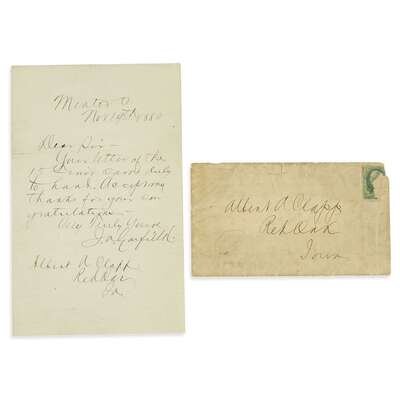 Mentor O.
Nov 15th 1880
Dear Sir -
Your letter of the
1st inst came duly
to hand. Accept my
thanks for your con
gratulations -
Very Truly Yours
J. A. Garfield.
Albert A Clapp
Red Oak
Ia
Albert A Clapp
Red Oak
Iowa